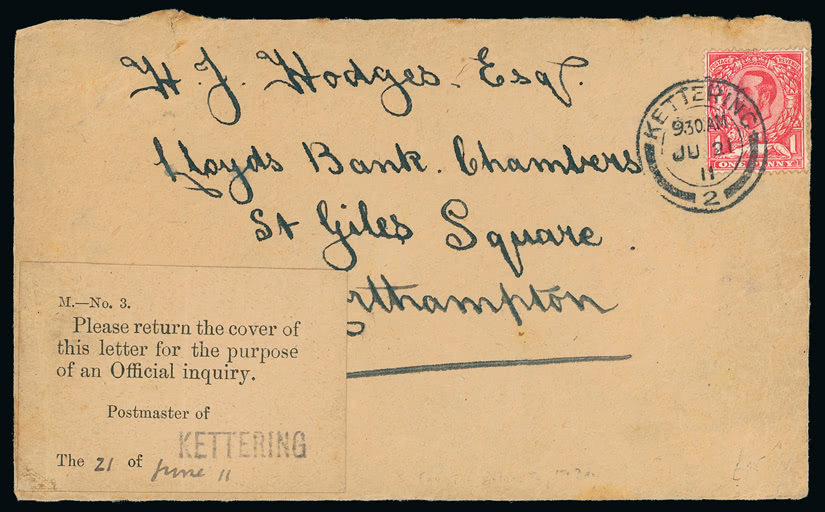 H. J. Hodges. Esq.
Lloyds Bank. Chambers
St Giles Square.
rthampton
KETTERING
9.30 AM
JU 21
11
2
POSTAGE REVENUE
ONE PENNY 1
M.—No. 3.
Please return the cover of
this letter for the purpose
of an Official inquiry.
Postmaster of
KETTERING
The 21 of June 11